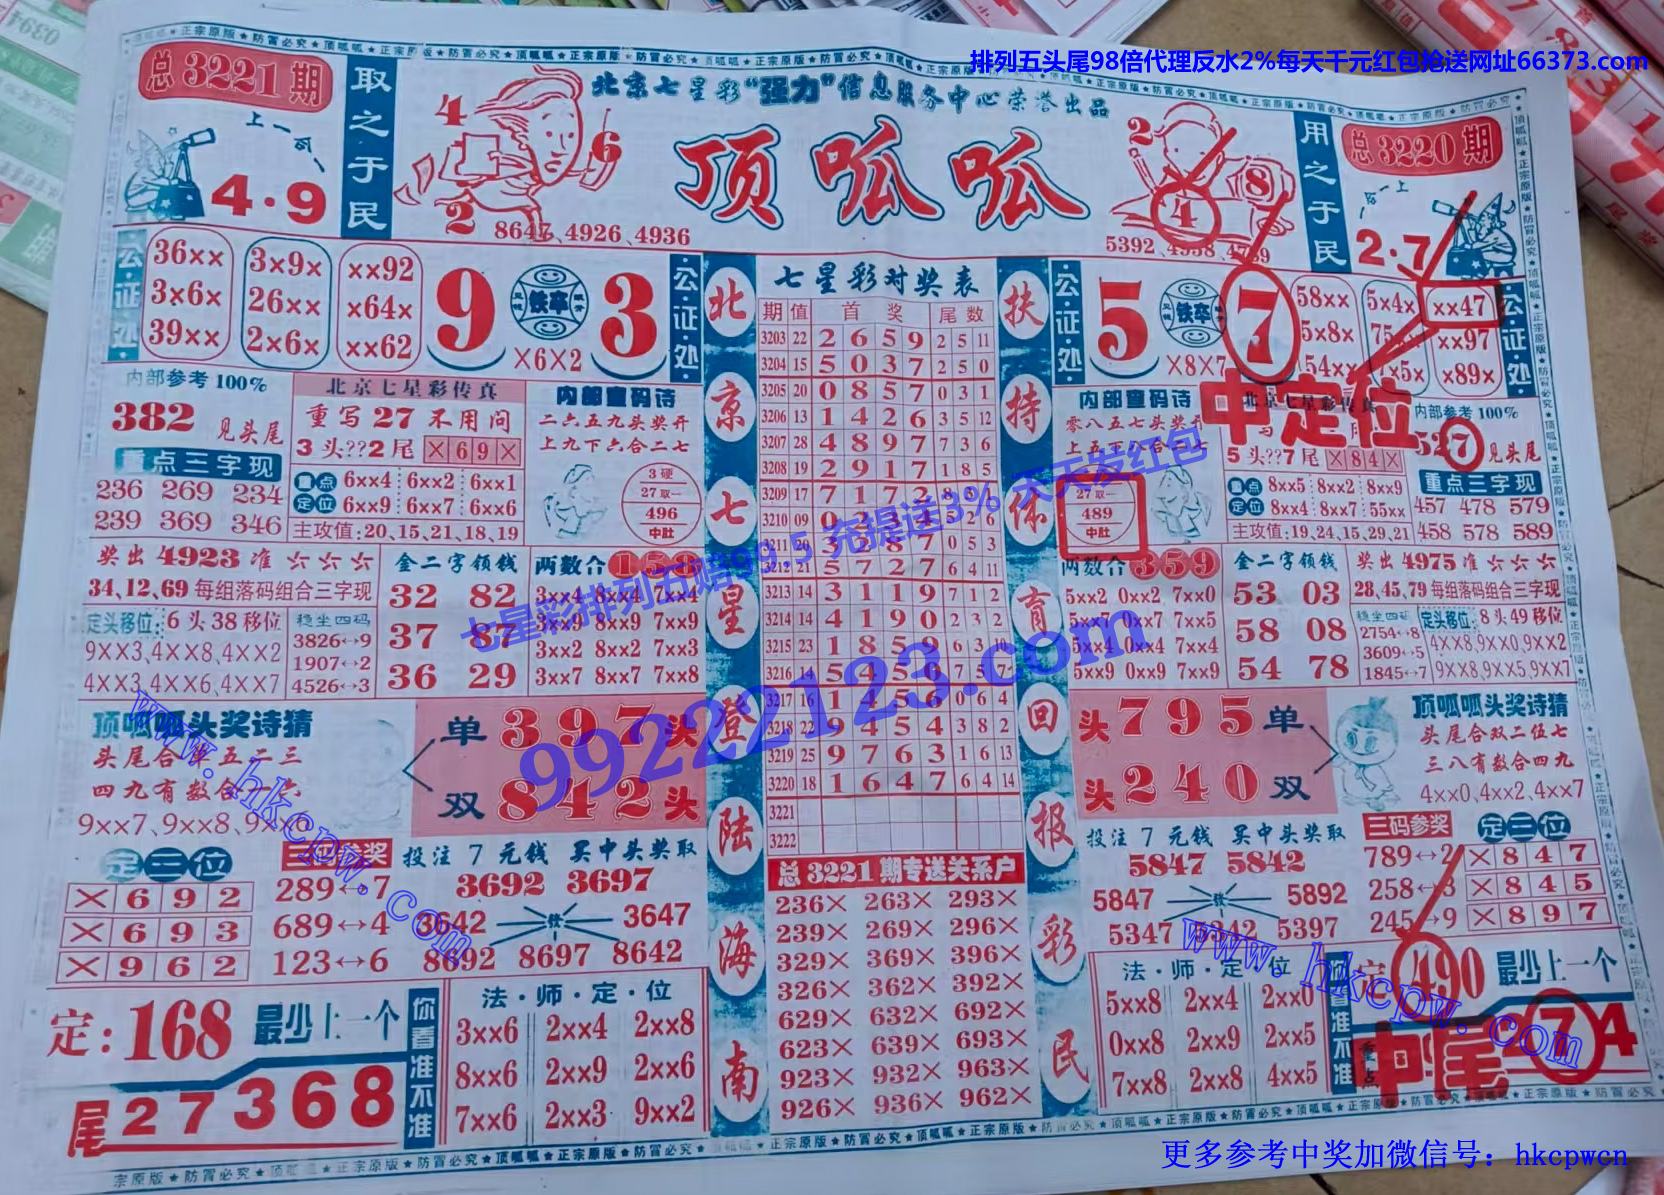 排列五头尾98倍代理反水2%每天千元红包抢送网址66373.com
总3221期
取之于民
上一个
4·9
北京七星彩“强力”信息服务中心荣誉出品
顶呱呱
4 6 2
8647、4926、4936
2 4 8
用之于民
总3220期
2·7
公·证·处
36×× 3×9× ××92
3×6× 26×× ×64×
39×× 2×6× ××62
9 铁卒 3
×6×2
公·证·处
5 铁卒 7
×8×7
58×× 5×4× ××47
5×8× ××97
54×× ×89×
公·证·处
内部参考100%
382 见头尾
重点三字现
236 269 234
239 369 346
北京七星彩传真
重写27不用问
3头??2尾 ×69×
重点定位
6××4 6××2 6××1
6××9 6××7 6××6
主攻值:20,15,21,18,19
内部密码诗
二六五九头奖开
上九下六合二七
3硬
27取一
496
中肚
奖出4923准
34,12,69每组落码组合三字现
定头移位: 6头38移位
9××3、4××8、4××2
4××3、4××6、4××7
稳坐四码
3826↔9
1907↔2
4526↔3
金二字领钱
32 82
37 87
36 29
两数合158
3××4 8××4 7××4
3××9 8××9 7××9
3××2 8××2 7××3
3××7 8××7 7××8
顶呱呱头奖诗猜
头尾合单五二三
9××7、9××8、
单 397头
双 842头
定三位
×692
×693
×962
三码参奖
289↔7
689↔4
123↔6
投注7元钱 买中头奖取
3692 3697
3642 3647
8692 8697 8642
定:168 最少上一个
尾27368
你看准不准
法·师·定·位
3××6 2××4 2××8
8××6 2××9 2××6
7××6 2××3 9××2
北京七星登陆海南
七星彩对奖表
期 值 首奖 尾数
3203 22 2659 2 5 11
3204 15 5037 2 5 0
3205 20 0857 0 3 1
3206 13 1426 3 5 12
3207 28 4897 7 3 6
3208 19 2917 1 8 5
3209 17 7172
3210 09
3211 20 3287 0 5 3
3212 21 5727 6 4 11
3213 14 3119 7 1 2
3214 14 4190 2 3 2
3215 23 1859 6 3 10
3216 14
3217 16 1456 0 6 4
3218 22 9454 3 8 2
3219 25 9763 1 6 13
3220 18 1647 6 4 14
3221
3222
总3221期专送关系户
236× 263× 293×
239× 269× 296×
329× 369× 396×
326× 362× 392×
629× 632× 692×
623× 639× 693×
923× 932× 963×
926× 936× 962×
扶持体育回报彩民
内部密码诗
零八五七头奖开
27取一
489
中肚
中定位
5头??7尾 ×84×
重点定位
8××5 8××2 8××9
8××4 8××7 55××
主攻值:19,24,15,29,21
内部参考100%
527 见头尾
重点三字现
457 478 579
458 578 589
两数合359
5××2 0××2 7××0
5××7 0××7 7××5
5××4 0××4 7××4
5××9 0××9 7××9
金二字领钱
53 03
58 08
54 78
奖出4975准
28,45,79每组落码组合三字现
稳坐四码
2754↔8
3609↔5
1845↔7
定头移位: 8头49移位
4××8、9××0、9××2
9××8、9××5、9××7
头795单
头240双
顶呱呱头奖诗猜
头尾合双二伍七
三八有数合四九
4××0、4××2、4××7
投注7元钱 买中头奖取
5847 5842
5847 5892
5347 5342 5397
三码参奖
789↔2
258↔3
245↔9
定三位
×847
×845
×897
法·师·定·位
5××8 2××4 2××0
0××8 2××9 2××5
7××8 2××8 4××5
你看准不准
定:490 最少上一个
中尾
74
七星彩排列五赔99.5 充提送3% 天天发红包
99222123.com
www.hkcpw.com
www.hkcpw.com
更多参考中奖加微信号：hkcpwcn